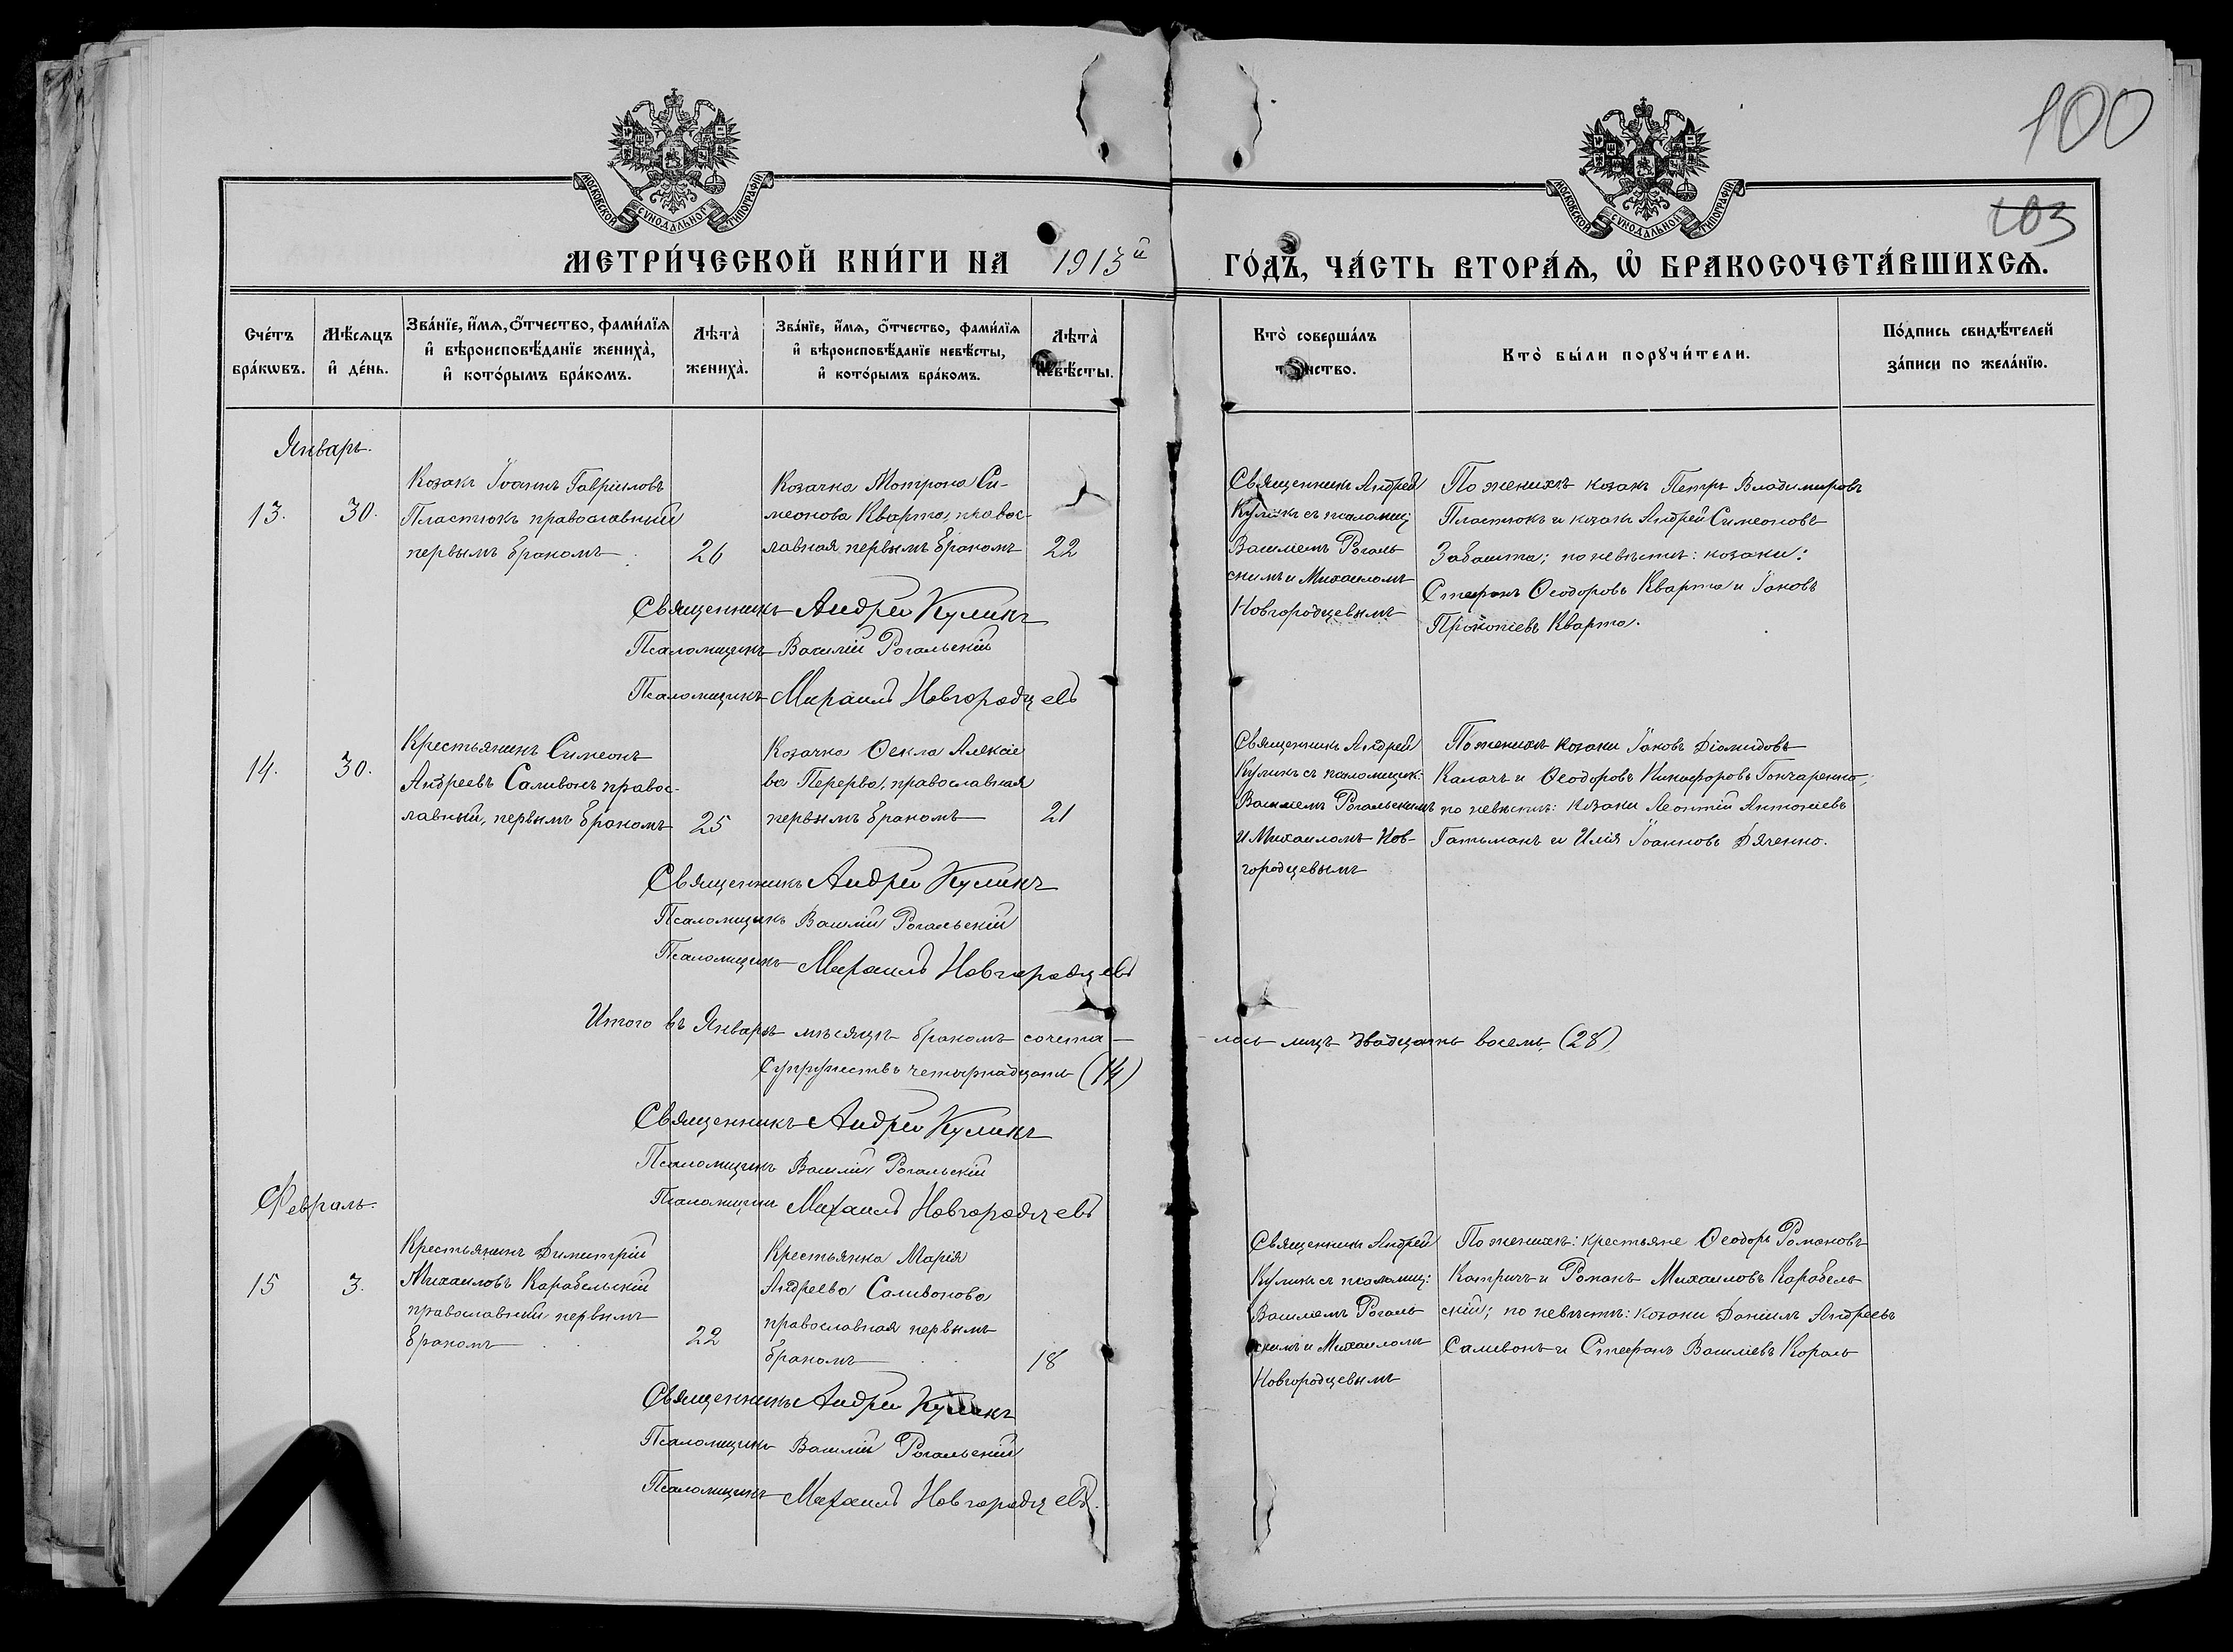 100
103
МОСКОВСКОЙ СѴНОДАЛЬНОЙ ТИПОГРАФІИ
МОСКОВСКОЙ СѴНОДАЛЬНОЙ ТИПОГРАФІИ
МЕТРИ́ЧЕСКОЙ КНИ́ГИ НА 1913й ГО́ДЪ, ЧА́СТЬ ВТОРА́Ѧ, Ѡ҆ БРАКОСОЧЕТА́ВШИХСѦ.
Сче́тъ бра́кѡвъ.
Мѣ́сѧцъ и҆ де́нь.
Зва́нїе, и҆́мѧ, ѻ҆́тчество, фами́лїѧ и҆ вѣроисповѣ́данїе жениха̀, и҆ кото́рымъ бра́комъ.
Лѣта̀ жениха̀.
Зва́нїе, и҆́мѧ, ѻ҆́тчество, фами́лїѧ и҆ вѣроисповѣ́данїе невѣ́сты, и҆ кото́рымъ бра́комъ.
Лѣта̀ невѣ́сты.
Кто̀ соверша́лъ таинство.
Кто̀ бы́ли порꙋчи́тели.
По́дпись свидѣ́телей за́писи по жела́нїю.
Январь.
13.
30.
Козакъ Іоаннъ Гавріиловъ
Пластюкъ православный
первымъ бракомъ
26
Козачка Матрона Си-
меонова Кварта, правос-
лавная первымъ бракомъ
22
Священникъ Андрей
Куликъ съ псаломщ:
Василіемъ Рогаль
скимъ и Михаиломъ
Новгородцевымъ
По женихѣ козакъ Петръ Владимировъ
Пластюкъ и козакъ Андрей Симеоновъ
Забашта; по невѣстѣ: козаки:
Стефанъ Ѳеодоровъ Кварта и Іаковъ
Прокопіевъ Кварта.
Священникъ Андрей Куликъ
Псаломщикъ Василій Рогальскій
Псаломщикъ Михаилъ Новгородцевъ
14.
30.
Крестьянинъ Симеонъ
Андреевъ Саливонъ правос-
лавный, первымъ бракомъ
25
Козачка Ѳекла Алексіе
ва Перерва, православная
первымъ бракомъ
21
Священникъ Андрей
Куликъ съ псаломщик:
Василіемъ Рогальскимъ
и Михаиломъ Нов-
городцевымъ
По женихѣ козаки Іаковъ Діомидовъ
Калачъ и Ѳеодоровъ Никифоровъ Гончаренко;
по невѣстѣ: козаки Леонтій Антоніевъ
Гатьманъ и Илія Іоанновъ Дяченко.
Священникъ Андрей Куликъ
Псаломщикъ Василій Рогальскій
Псаломщикъ Михаилъ Новгородцевъ
Итого въ Январѣ мѣсяцѣ бракомъ сочета-
лось лицъ двадцать восемь (28)
Супружествъ четырнадцать (14)
Священникъ Андрей Куликъ
Псаломщикъ Василій Рогальскій
Псаломщикъ Михаилъ Новгородцевъ
Февраль.
15
3.
Крестьянинъ Димитрій
Михаиловъ Карабельскій
православный первымъ
бракомъ
22
Крестьянка Марія
Андреева Саливонова
православная первымъ
бракомъ
18
Священникъ Андрей
Куликъ съ псаломщ:
Василіемъ Рогаль
скимъ и Михаиломъ
Новгородцевымъ
По женихѣ: крестьяне Ѳеодоръ Романовъ
Катричъ и Романъ Михаиловъ Карабель
скій; по невѣстѣ: козаки Даніилъ Андреевъ
Саливонъ и Стефанъ Василіевъ Король
Священникъ Андрей Куликъ
Псаломщикъ Василій Рогальскій
Псаломщикъ Михаилъ Новгородцевъ.